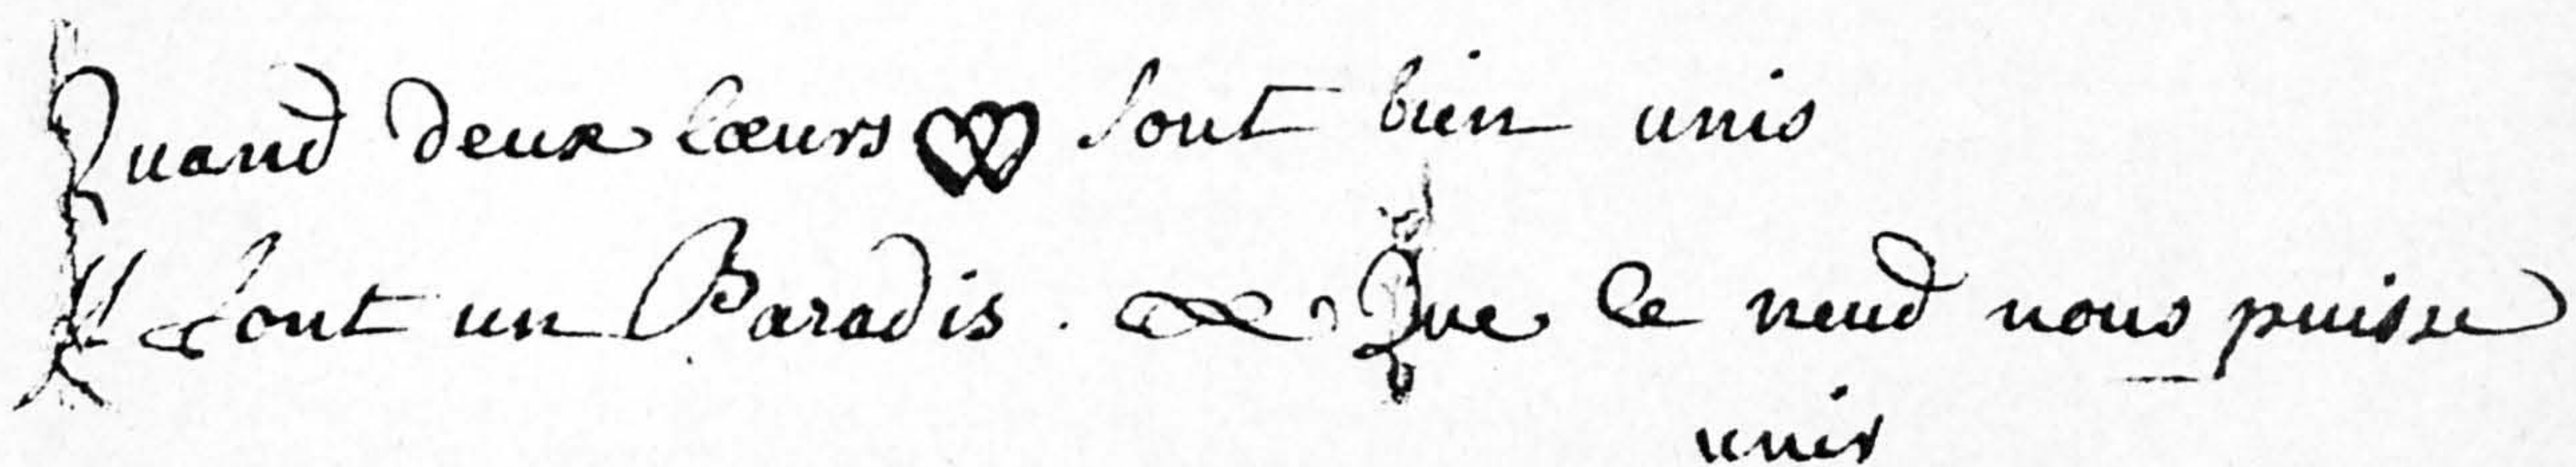 Quand deux Cœurs sont bien unis
Il font un Paradis. Que le neud nous puisse
unir